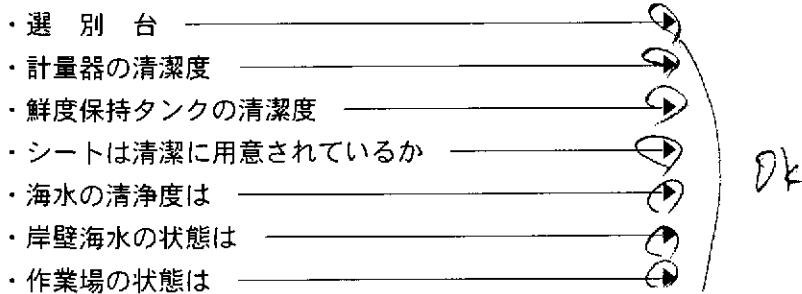 ・選 別 台
・計量器の清潔度
・鮮度保持タンクの清潔度
・シートは清潔に用意されているか
・海水の清浄度は
・岸壁海水の状態は
・作業場の状態は
Ok